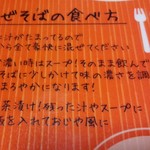 ぜそばの食べ方
汁がたまってるので
から全て豪快に混ぜてください
濃い時はスープ!そのまま飲んで
そばに少しかけて味の濃さを調
まろやかになります!
茶漬け!残った汁やスープに
を入れておじや風に